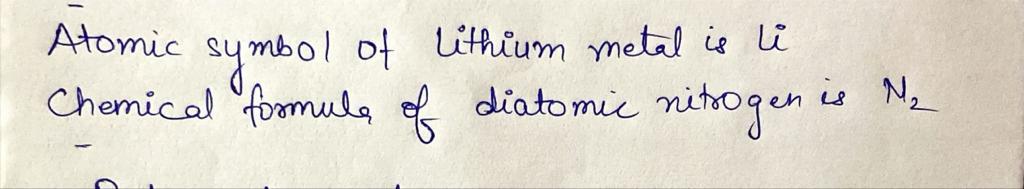 Atomic symbol of Lithium metal is Li
Chemical formula of diatomic nitrogen is N₂